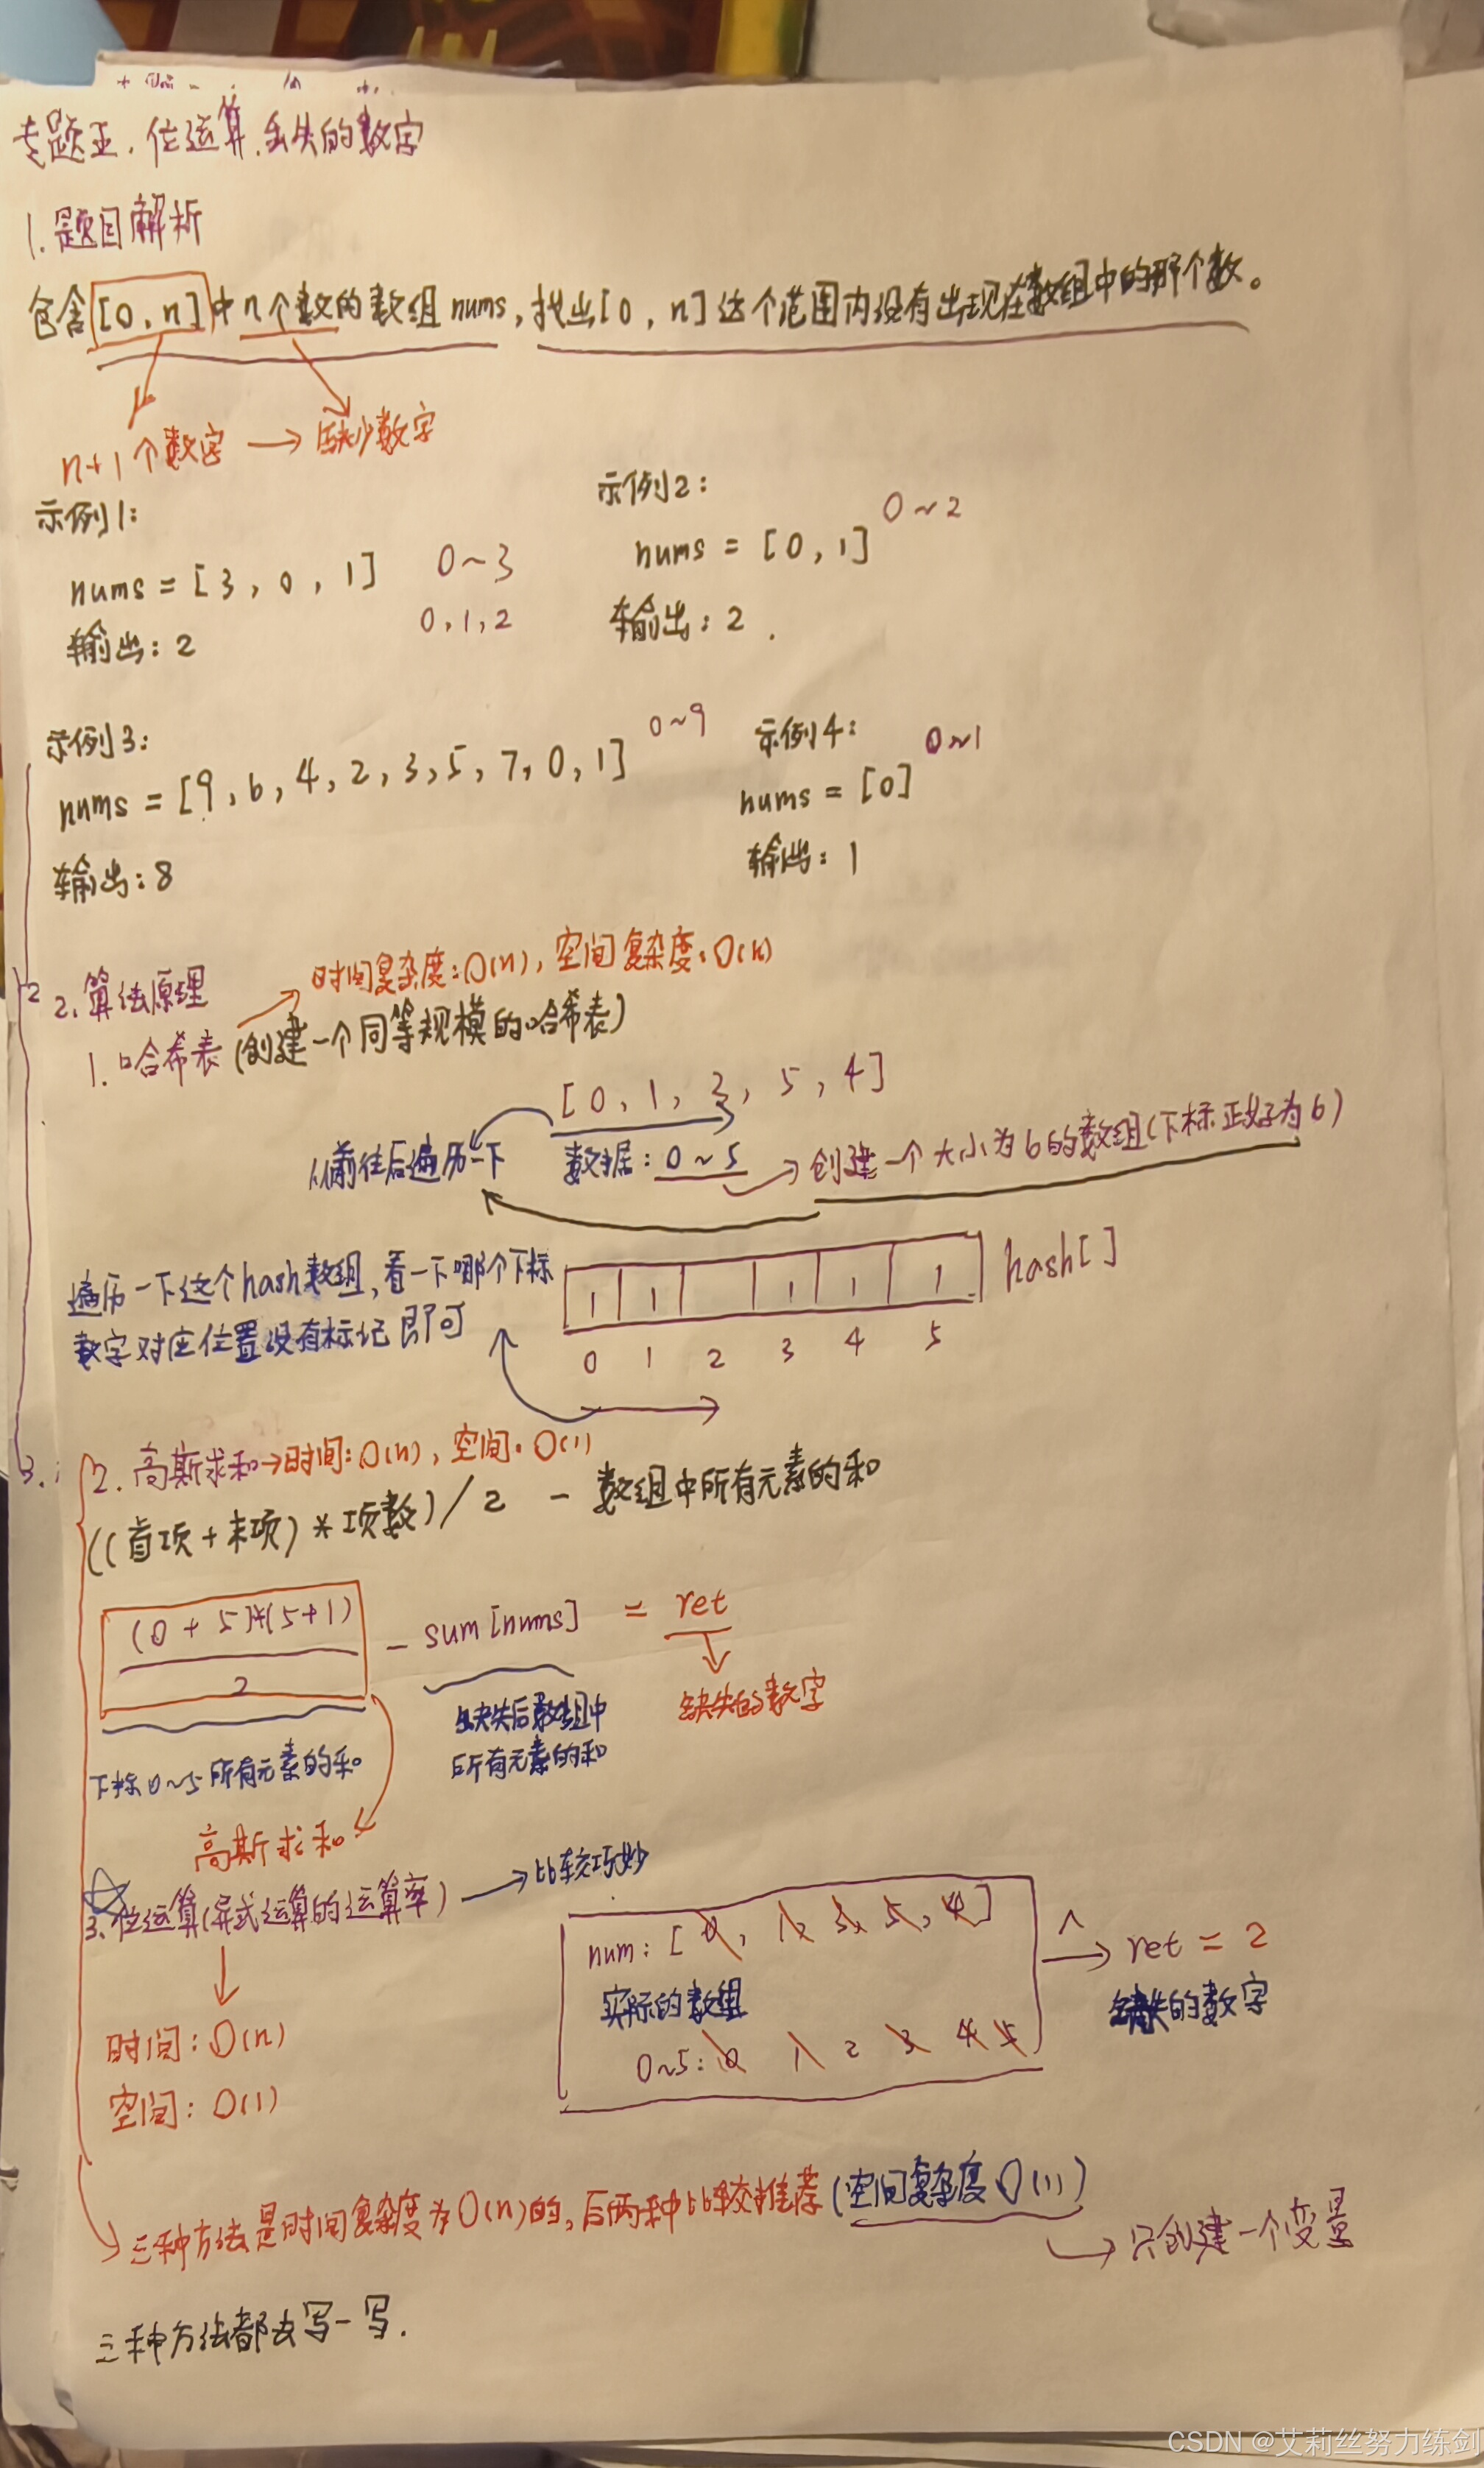 专题五.位运算.丢失的数字
1.题目解析
包含[0,n]中n个数的数组nums,找出[0,n]这个范围内没有出现在数组中的那个数。
n+1个数字 → 缺少数字
示例1:
nums=[3,0,1] 0~3
0,1,2
输出:2
示例2:
nums=[0,1] 0~2
输出:2.
示例3:
nums=[9,6,4,2,3,5,7,0,1] 0~9
输出:8
示例4:
nums=[0] 0~1
输出:1
2
2.算法原理
时间复杂度:O(n),空间复杂度:O(n)
1.哈希表(创建一个同等规模的哈希表)
[0,1,3,5,4]
从前往后遍历一下
数据:0~5 → 创建一个大小为6的数组(下标正好为6)
遍历一下这个hash数组,看一下哪个下标
数字对应位置没有标记即可
1 1 1 1 1 hash[]
0 1 2 3 4 5
3.
2.高斯求和→时间:O(n),空间:O(1)
((首项+末项)*项数)/2 - 数组中所有元素的和
(0+5)*(5+1)
2
- sum[nums] = ret
缺失后数组中
所有元素的和
缺失的数字
下标0~5所有元素的和
高斯求和
3.位运算(异或运算的运算率) → 比较巧妙
时间:O(n)
空间:O(1)
num:[0,1,3,5,4]
实际的数组
0~5:0 1 2 3 4 5
^ → ret=2
缺失的数字
三种方法是时间复杂度为O(n)的,后两种比较推荐(空间复杂度O(1))
→ 只创建一个变量
三种方法都去写一写.
CSDN @艾莉丝努力练剑